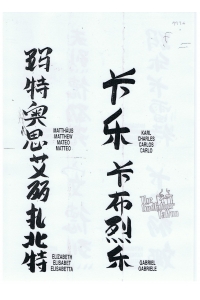 玛特奥思
MATTHÄUS
MATTHEW
MATEO
MATTEO
艾扎北特
ELIZABETH
ELISABET
ELISABETTA
卡乐
KARL
CHARLES
CARLOS
CARLO
卡布烈乐
GABRIEL
GABRIELE